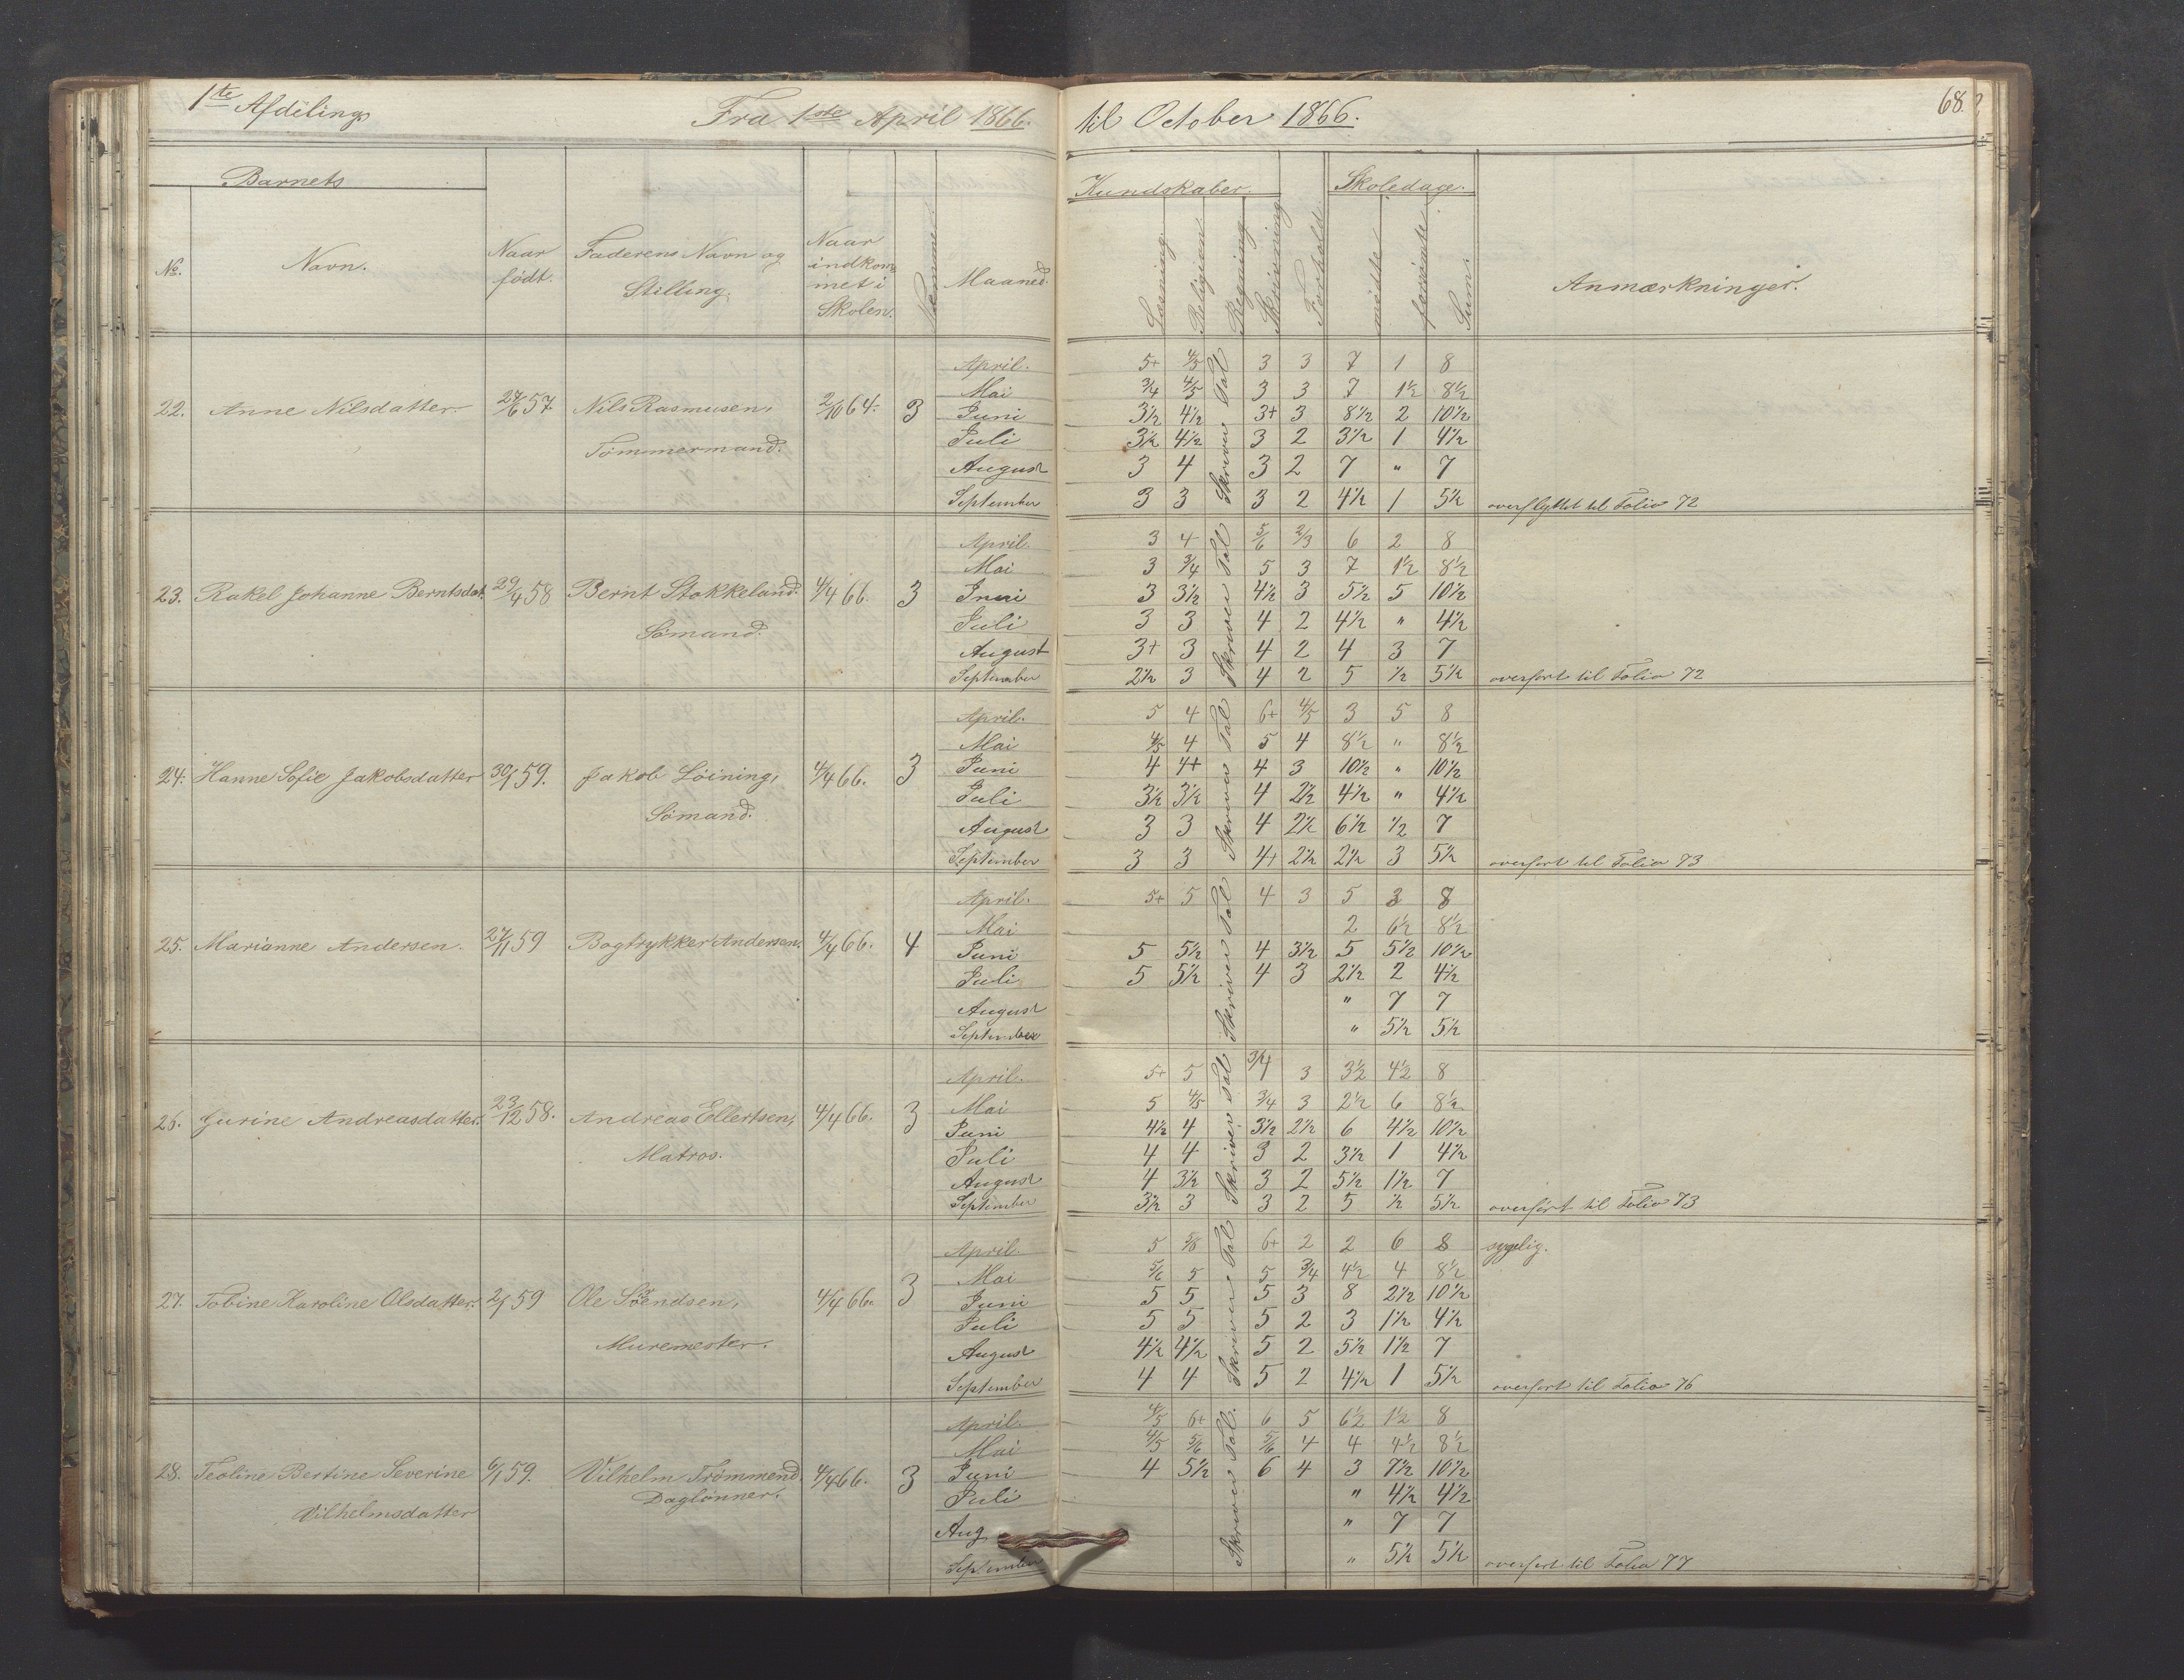 1ste Afdeling
Fra 1ste April 1866. til October 1866.
68.
Barnets
Kundskaber. Skoledage.
No. Navn. Naar født. Faderens Navn og Stilling. Naar indkommet i Skolen. Nemme. Maaned. Læsning Religion Regning Skrivning Forhold mødte forsømte Sum. Anmærkninger.
April. 5+ 4/5 3 3 7 1 8
Mai 3/4 4/5 3 3 7 1½ 8½
22. Anne Nilsdatter 27/6 57 Nils Rasmusen, 2/10 64. 3 Juni 3½ 4½ 3+ 3 8½ 2 10½
Juli 3½ 4½ 3 2 3½ 1 4½
Tømmermand.
August 3 4 3 2 7 " 7
September 3 3 3 2 4½ 1 5½ overflyttet til Folio 72
Skriver Tal
April. 3 4 5/6 2/3 6 2 8
Mai 3 3/4 5 3 7 1½ 8½
23. Rakel Johanne Berntsdat. 29/4 58 Bernt Stokkeland. 4/4 66. 3 Juni 3 3½ 4½ 3 5½ 5 10½
Juli 3 3 4 2 4½ " 4½
Sømand.
August 3+ 3 4 2 4 3 7
September 2½ 3 4 2 5 ½ 5½ overført til Folio 72
Skriver Tal
April. 5 4 6+ 4/5 3 5 8
Mai 4/5 4 5 4 8½ " 8½
24. Hanne Sofie Jakobsdatter 30/1 59. Jakob Løining, 4/4 66. 3 Juni 4 4+ 4 3 10½ " 10½
Juli 3½ 3½ 4 2½ 4½ " 4½
Sømand.
August 3 3 4 2½ 6½ ½ 7
September 3 3 4+ 2½ 2½ 3 5½ overført til Folio 73
Skriver Tal
April. 5+ 5 4 3 5 3 8
Mai 2 6½ 8½
25. Marianne Andersen. 27/11 59 Bogtrykker Andersen. 4/4 66. 4 Juni 5 5½ 4 3½ 5 5½ 10½
Juli 5 5½ 4 3 2½ 2 4½
August " 7 7
September " 5½ 5½
Skriver Tal
April. 5+ 5 3/4 3 3½ 4½ 8
Mai 5 4/5 3/4 3 2½ 6 8½
26. Gurine Andreasdatter. 23/12 58. Andreas Ellertsen, 4/4 66. 3 Juni 4½ 4 3½ 2½ 6 4½ 10½
Matros.
Juli 4 4 3 2 3½ 1 4½
August 4 3½ 3 2 5½ 1½ 7
September 3½ 3 3 2 5 ½ 5½ overført til Folio 73
Skriver Tal
April. 5 5/6 6+ 2 2 6 8 sygelig.
Mai 5/6 5 5 3/4 4½ 4 8½
27. Tobine Karoline Olsdatter. 2/1 59 Ole Svendsen, 4/4 66. 3 Juni 5 5 5 3 8 2½ 10½
Juli 5 5 5 2 3 1½ 4½
Muremester.
August 4½ 4½ 5 2 5½ 1½ 7
September 4 4 5 2 4½ 1 5½ overført til Folio 76
Skriver Tal
April. 4/5 6+ 6 5 6½ 1½ 8
Mai 4/5 5/6 5/6 4 4 4½ 8½
28. Teoline Bertine Severine 6/1 59. Vilhelm Trømmend. 4/4 66. 3 Juni 4 5½ 6 4 3 7½ 10½
Daglønner.
Juli " 4½ 4½
Vilhelmsdatter
Aug " 7 7
September " 5½ 5½ overført til Folio 77
Skriver Tal.